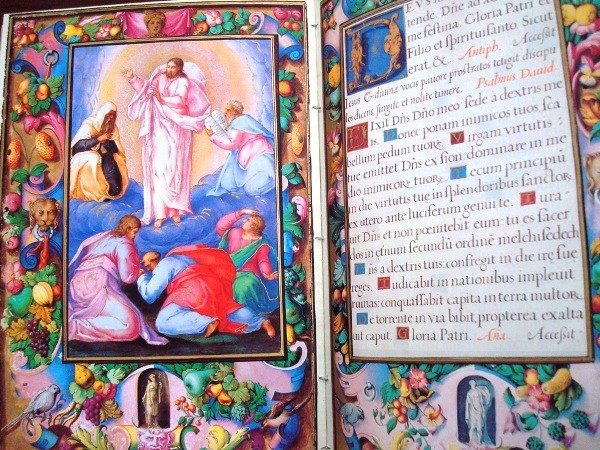 D
tende. Dñe ad ad
me festina. Gloria Patri et
Filio et Spirituisanto. Sicut
erat. & Antiph. Accessit
Iesus & divinæ vocis pavore prostratos tetigit discipu
los dicens surgite et nolite timere. Psalmus Dauid.
DIXIT Dñs Dño meo sede à dextris me
is. Donec ponam inimicos tuos sca
bellum pedum tuorꝫ. Virgam virtutis
tuę emittet Dñs ex sion dominare in me
dio inimicorꝫ tuorꝫ. Tecum principiū
in die virtutis tuę in splendoribus sanctorꝫ
ex utero ante luciferum genui te. Iura
uit Dñs et non pœnitebit eum: tu es sacer
dos in ęternū secundū ordinē melchisedech
Dñs a dextris tuis: confregit in die irę suę
reges. Iudicabit in nationibus impleuit
ruinas: conquassabit capita in terra multorꝫ
De torrente in via bibit, propterea exalta
uit caput. Gloria Patri. Ana. Accessit